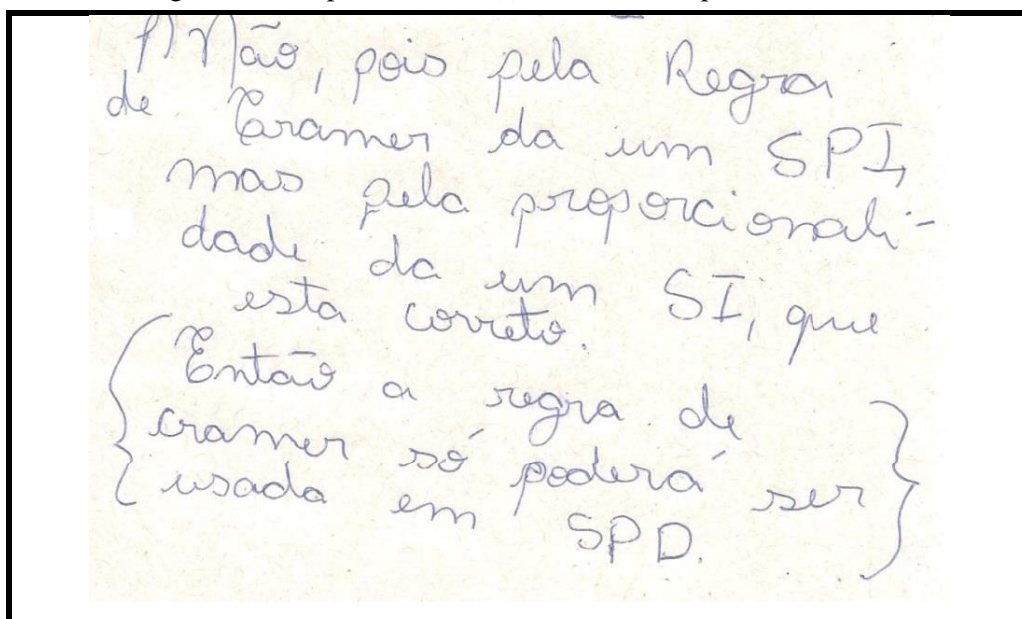 f) Não, pois pela Regra
de Cramer da um SPI,
mas pela proporcionali-
dade da um SI, que
esta correto.
Então a regra de
cramer só poderá ser
usada em SPD.